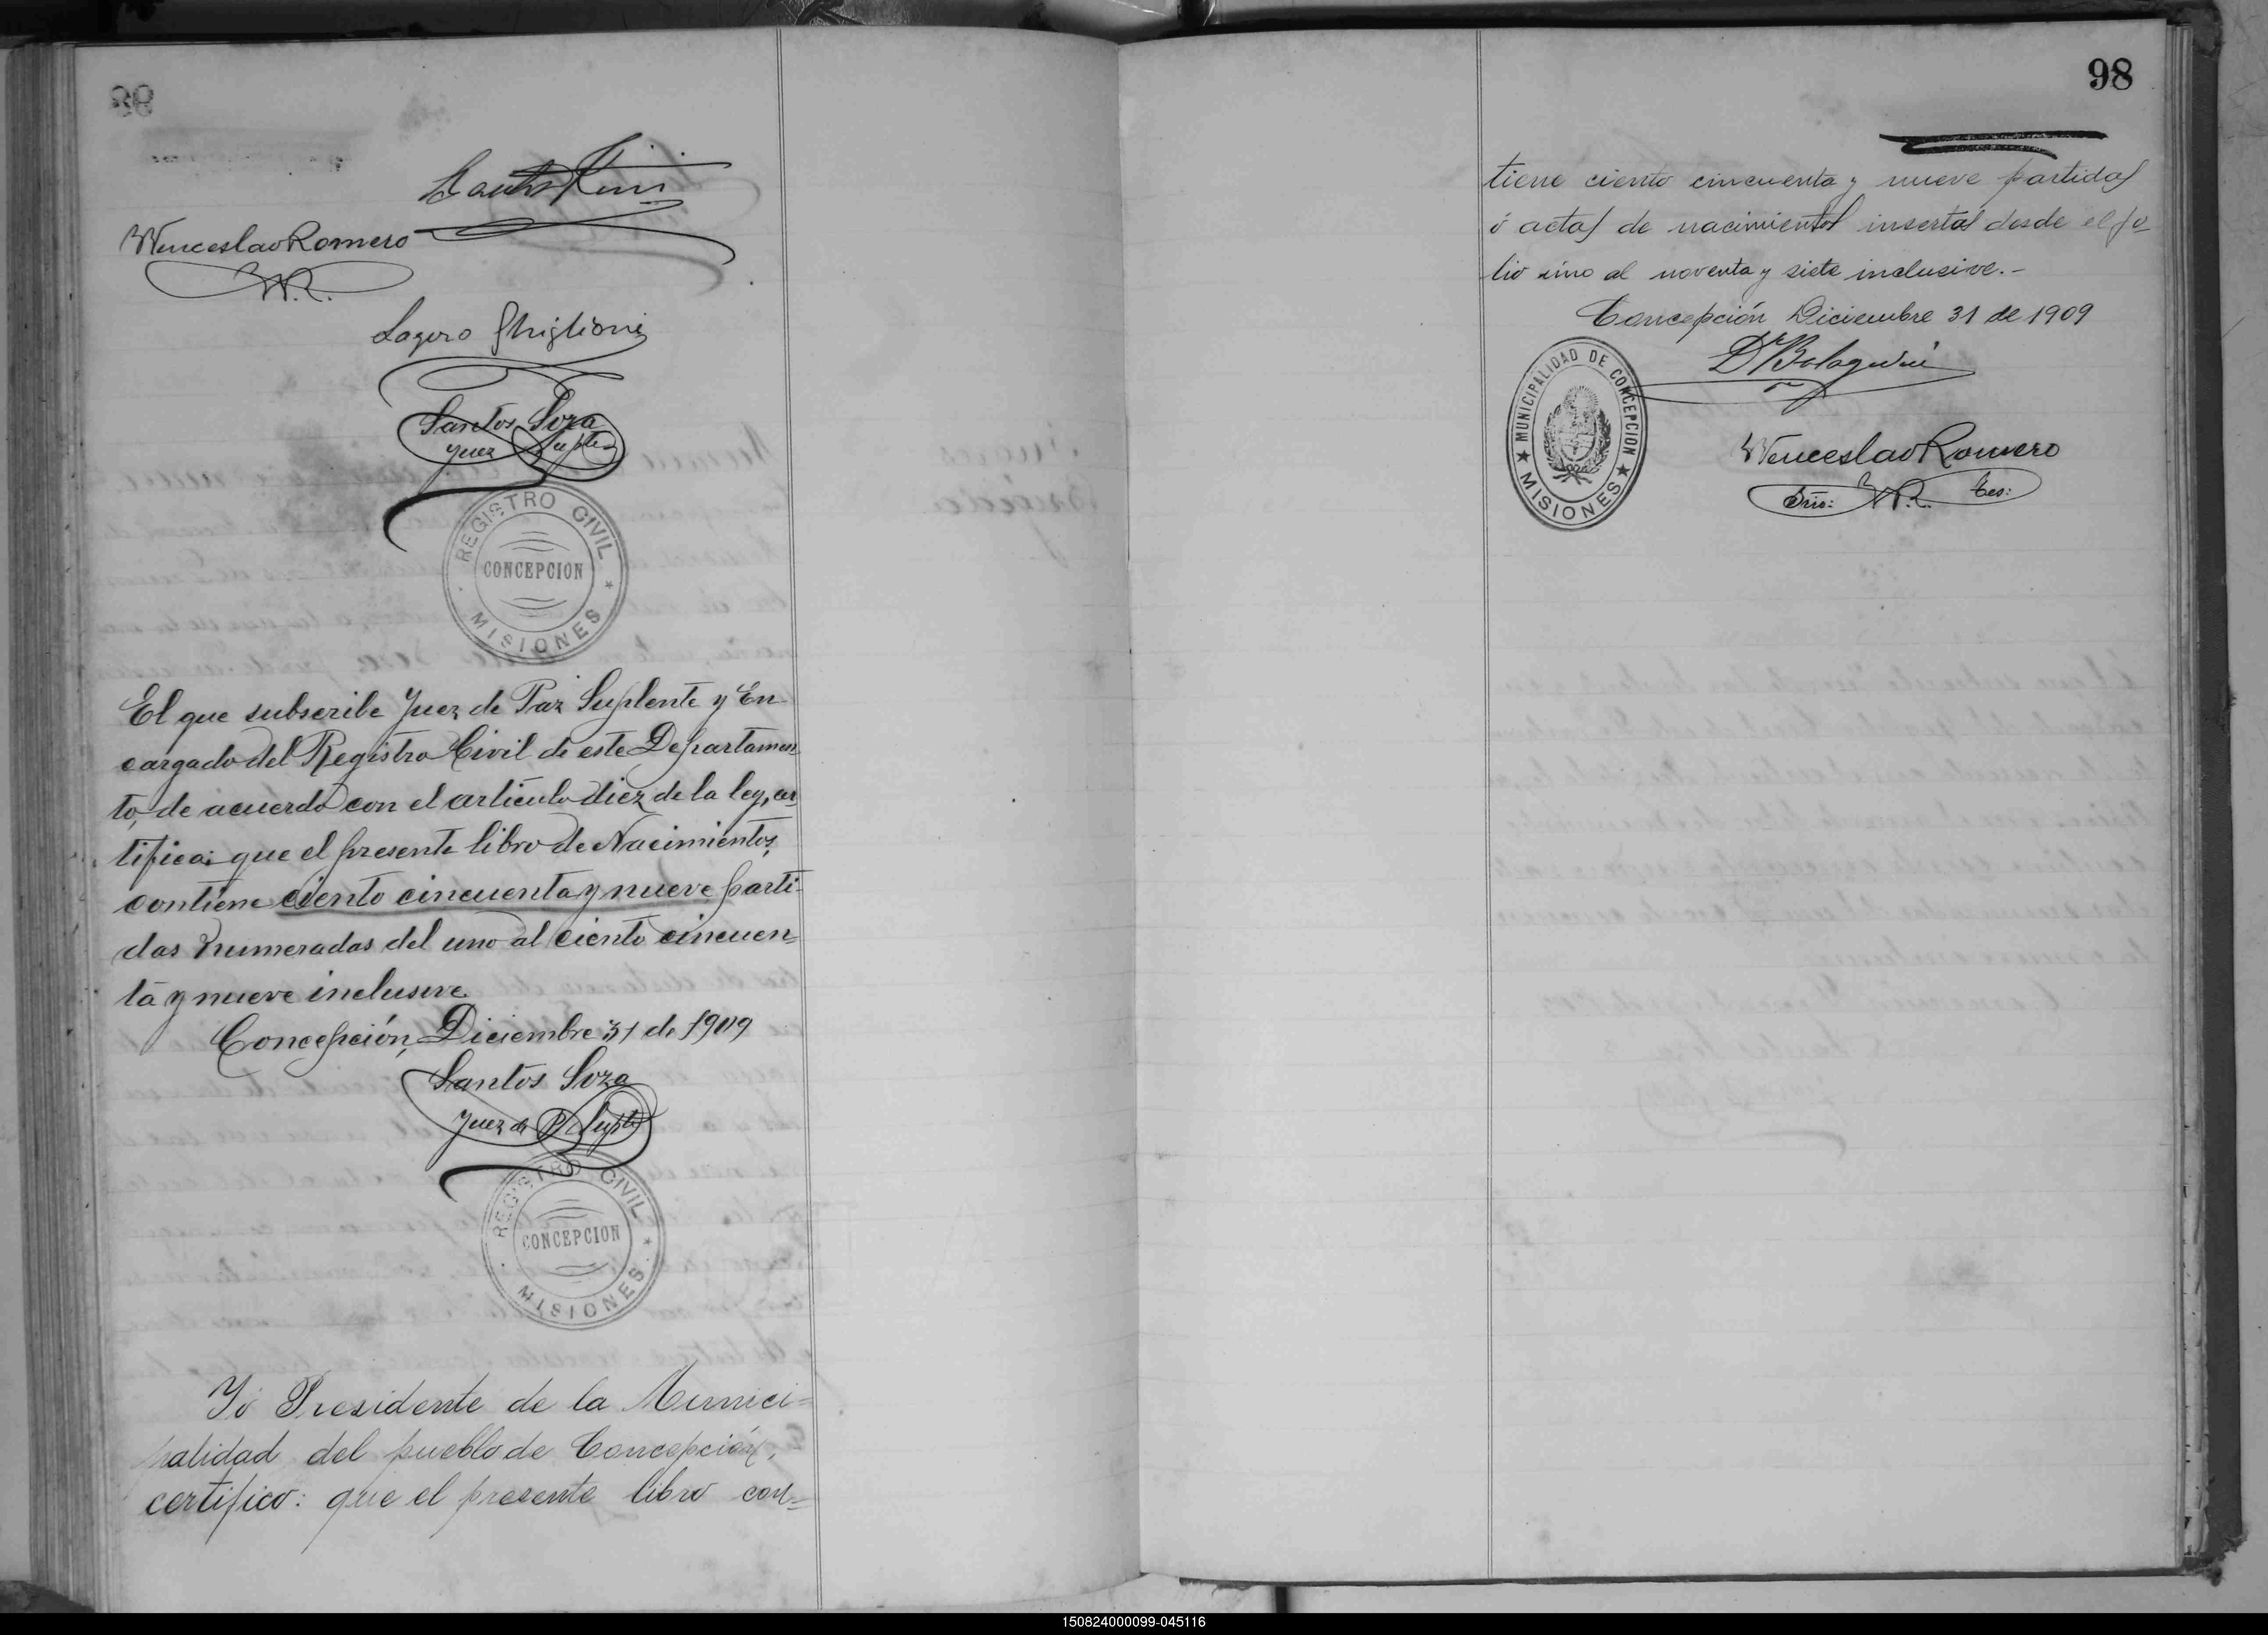 Wenceslao Romero
W.R.
Lazaro Ghiglioni
Santos Soza
Juez Suplte
REGISTRO CIVIL
CONCEPCION
MISIONES
El que subscribe Juez de Paz Suplente y En
cargado del Registro Civil de este Departamen
to, de acuerdo con el artículo diez de la ley, cer
tifica: que el presente libro de Nacimientos,
contiene ciento cincuenta y nueve parti-
das numeradas del uno al ciento cincuen-
ta y nueve inclusive
Concepción, Diciembre 31 de 1909
Santos Soza
Juez de P. Suplte
REGISTRO CIVIL
CONCEPCION
MISIONES
Yó Presidente de la Munici=
palidad del pueblo de Concepción,
certifico: que el presente libro con=
98
tiene ciento cincuenta y nueve partidas
ó actas de nacimientos insertas desde el fo=
lio uno al noventa y siete inclusive.-
Concepción Diciembre 31 de 1909
MUNICIPALIDAD DE CONCEPCION
MISIONES
Wenceslao Romero
Srio: W.R. Tes:
150824000099-045116